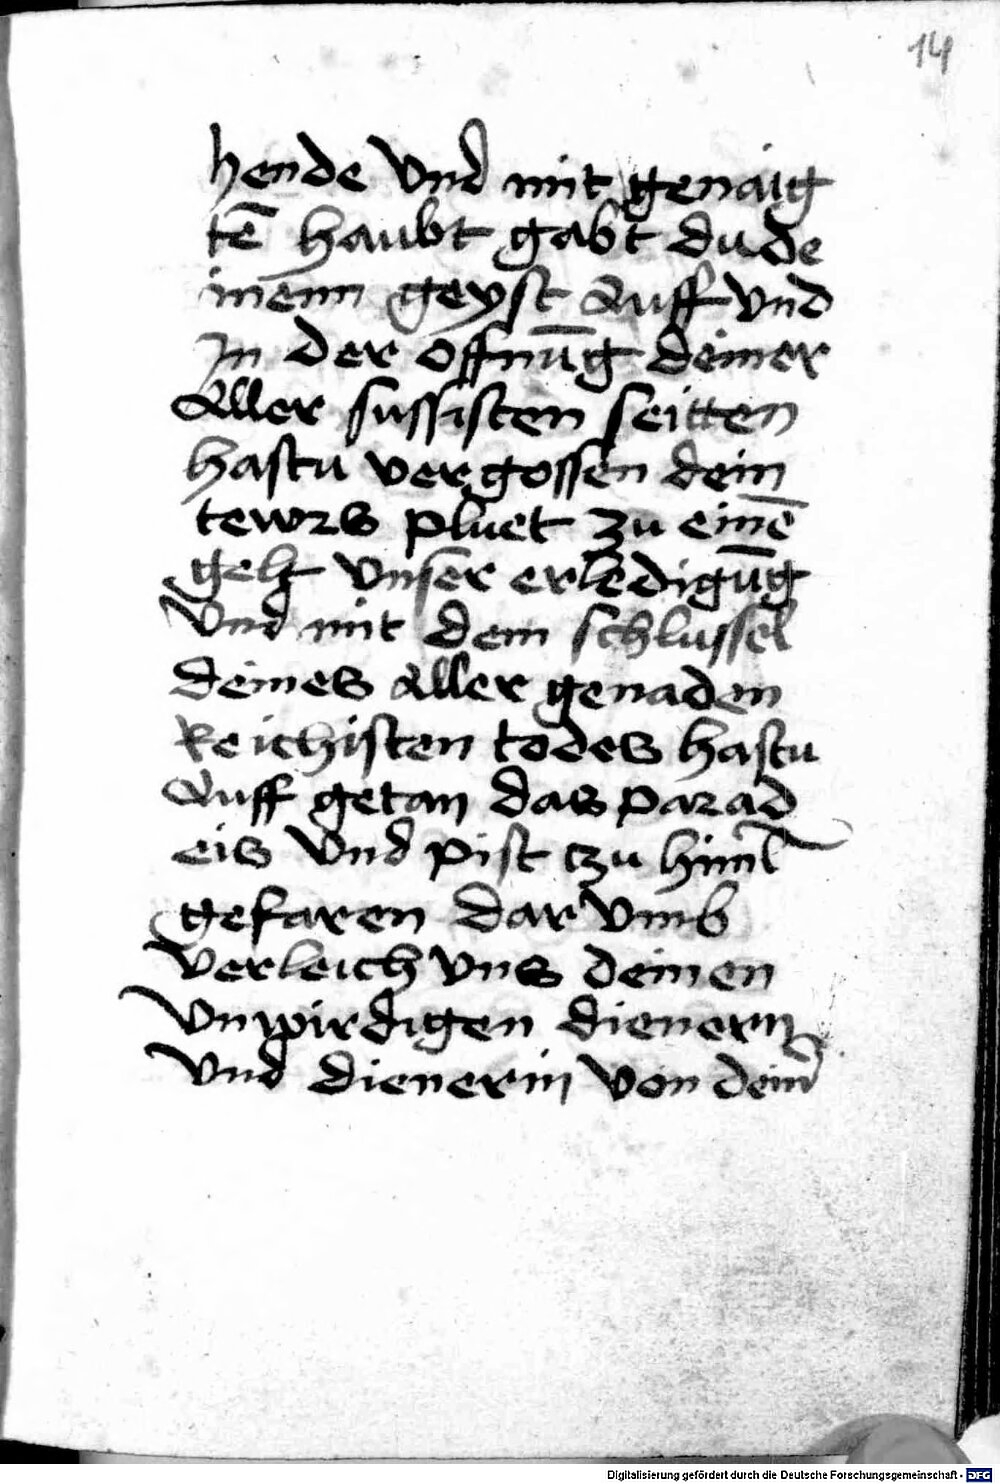 14
hende vnd mit genaig
tē haubt gabt du de
inenn geyst Auff vnd
In der offnūg deiner
Aller sussisten seitten
hastu vergossen dein
tewrs pluet zu einē
gelt vnser erledigūg
vnd mit dem schlussel
deines Aller genaden
Reichisten todes hastu
Auff getan das parad
eis vnd pist tzu himl
gefaren dar vmb
verleich vns deinen
vnwirdigen dienern
vnd dienerin von dein
Digitalisierung gefördert durch die Deutsche Forschungsgemeinschaft - DFG